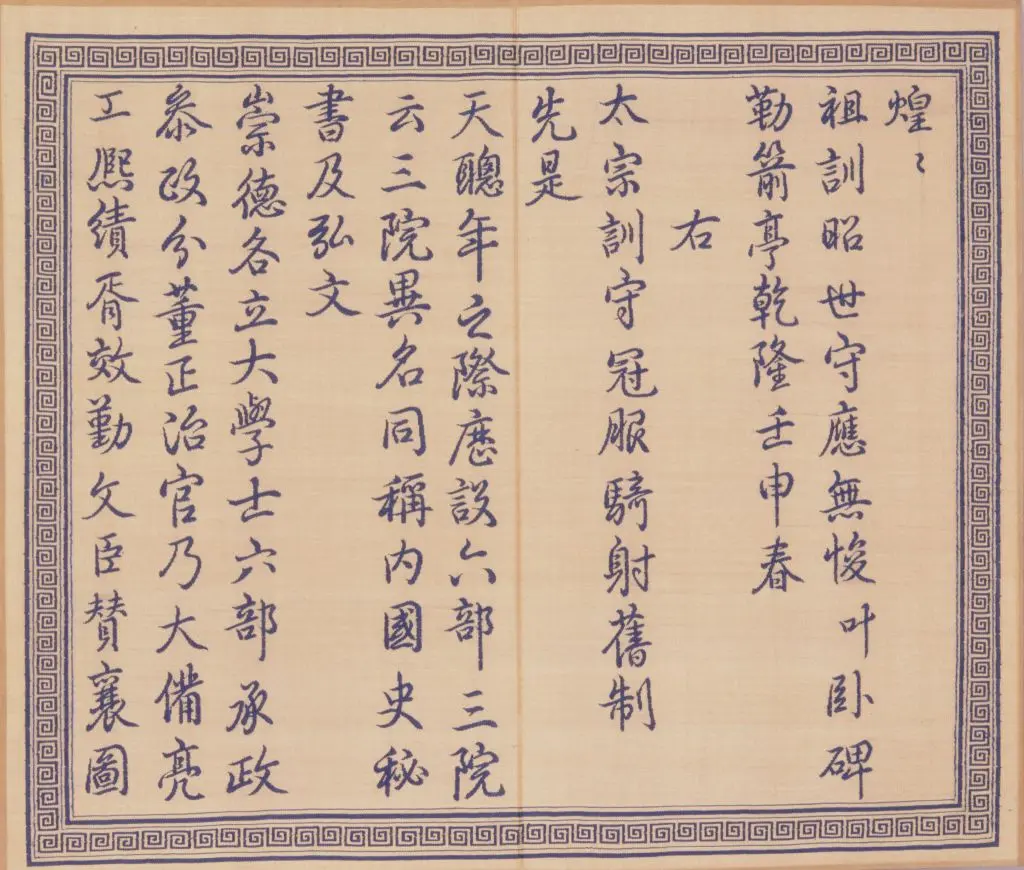 煌〻
祖訓昭世守應無悛叶卧碑
勒箭亭乾隆壬申春
右
太宗訓守冠服騎射舊制
先是
天聰年之際歷設六部三院
云三院異名同稱内國史秘
書及弘文
崇德各立大學士六部承政
叅政分董正治官乃大備亮
工熙績胥效勤文臣贊襄圖